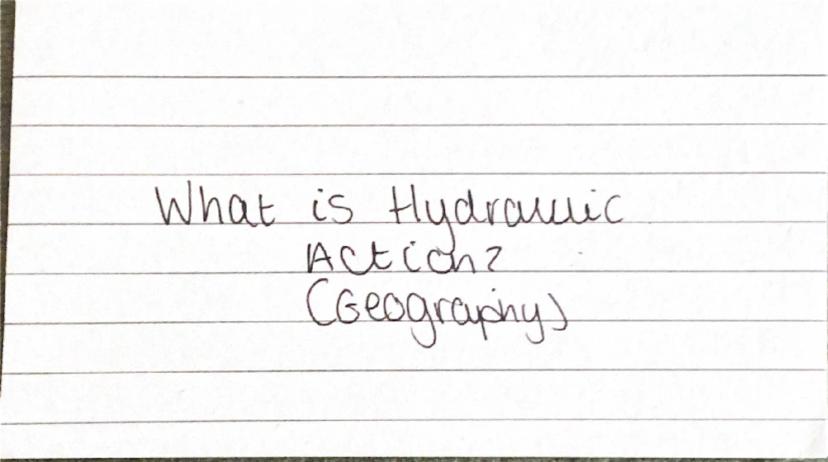 What is Hydraulic
Action?
(Geography)